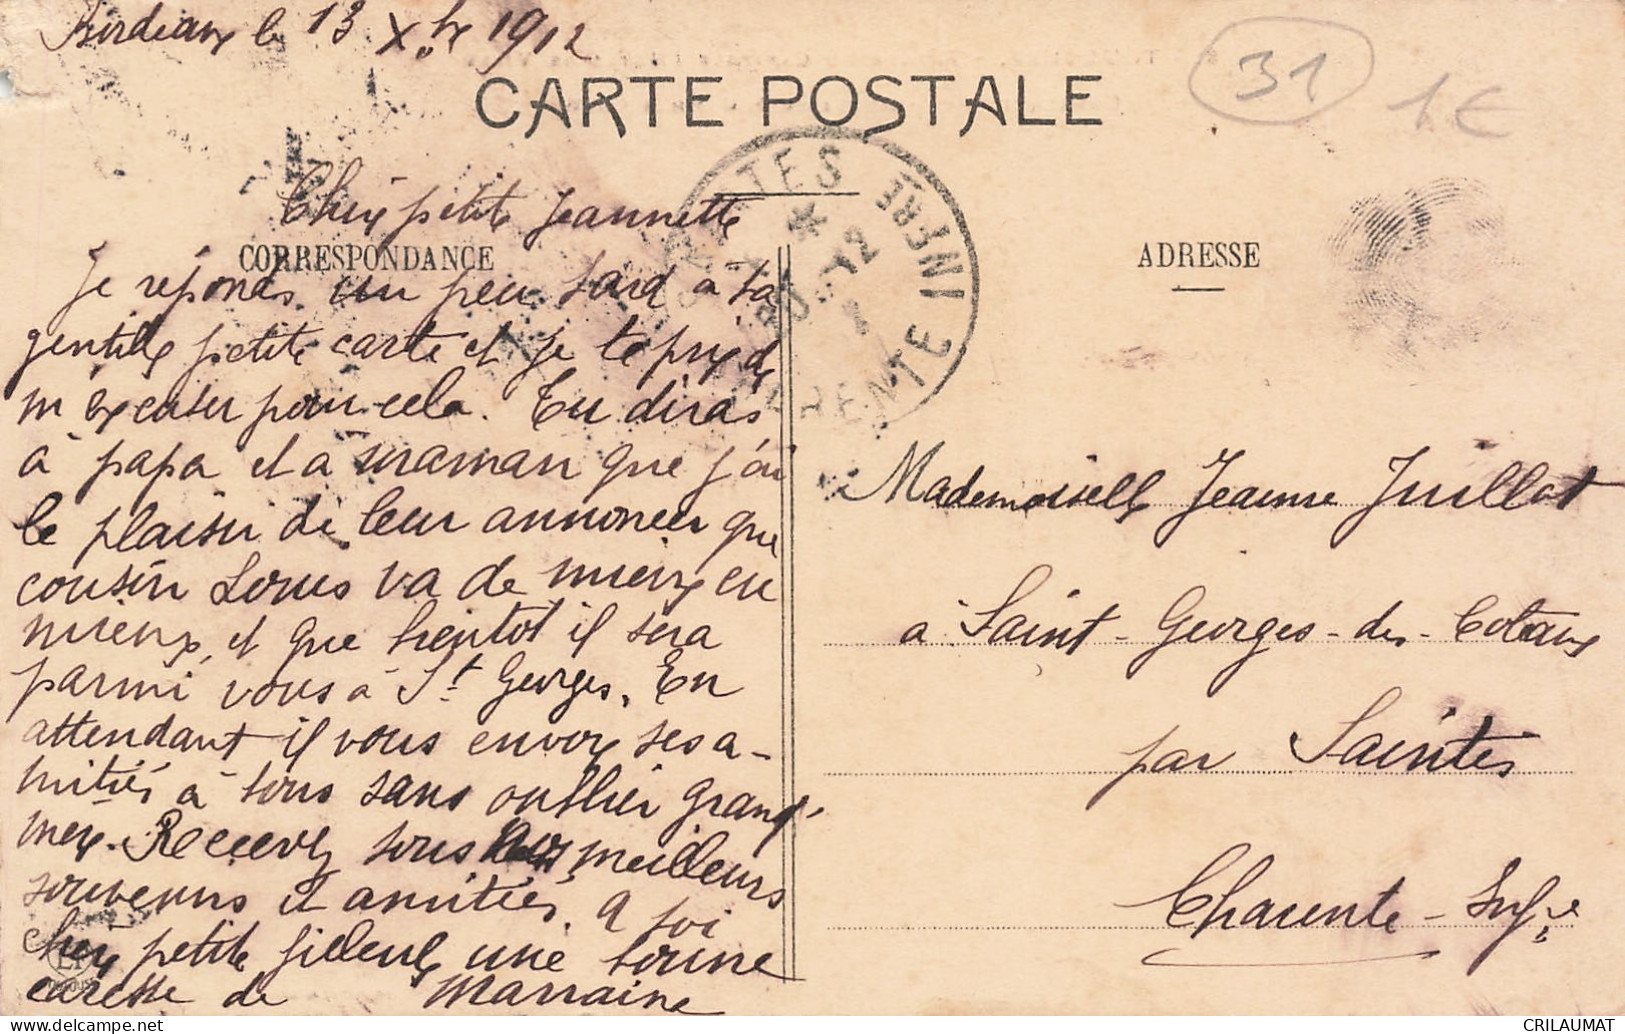 Bordeaux le 13 Xbre 1912
31
1€
CARTE POSTALE
SAINTES
CHARENTE INFRE
12
CORRESPONDANCE
ADRESSE
Chère petite Jeannette
Je réponds un peu tard à ta
gentille petite carte et je te prie de
m'excuser pour cela. Tu diras
à papa et à maman que j'ai
le plaisir de leur annoncer que
cousin Louis va de mieux en
mieux, et que bientôt il sera
parmi vous à St Georges. En
attendant il vous envoie ses a-
mitiés à tous sans oublier grand'
mère. Recevez tous nos meilleurs
souvenirs et amitiés. A toi
chère petite filleule une bonne
caresse de Marraine
Mademoiselle Jeanne Juillat
à Saint-Georges-des-Coteaux
par Saintes
Charente-Infre
CRILAUMAT